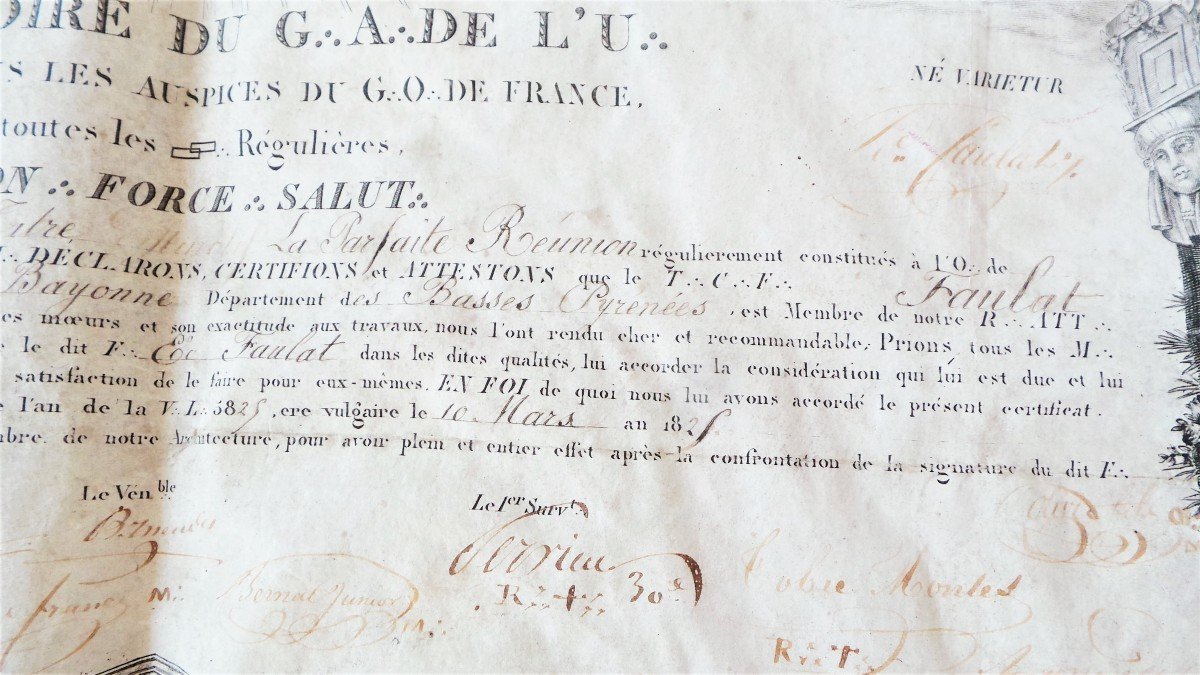 OIRE DU G∴A∴DE L'U∴
US LES AUSPICES DU G∴O∴DE FRANCE,
toutes les ▭▭∴ Régulières,
ON ∴ FORCE ∴ SALUT∴
NÉ VARIETUR
Faulat
Titre La Parfaite Réunion régulierement constitués à l'O∴ de
DÉCLARONS, CERTIFIONS et ATTESTONS que le T∴C∴F∴ Faulat
Bayonne Département des Basses Pyrénées, est Membre de notre R∴ ATT∴
es mœurs et son exactitude aux travaux, nous l'ont rendu cher et recommandable. Prions, tous les M∴
e le dit F∴ Faulat dans les dites qualités, lui accorder la considération qui lui est due et lui
satisfaction de le faire pour eux-mêmes. EN FOI de quoi nous lui avons accordé le présent certificat.
e l'an de la V∴L∴5825, ere vulgaire le 10 Mars an 1825
mbre de notre Architecture, pour avoir plein et entier effet après la confrontation de la signature du dit F∴
Le Vén.ble
Le 1er Survt∴
Bernal Junior M∴
R∴+∴ 30e
R∴T∴